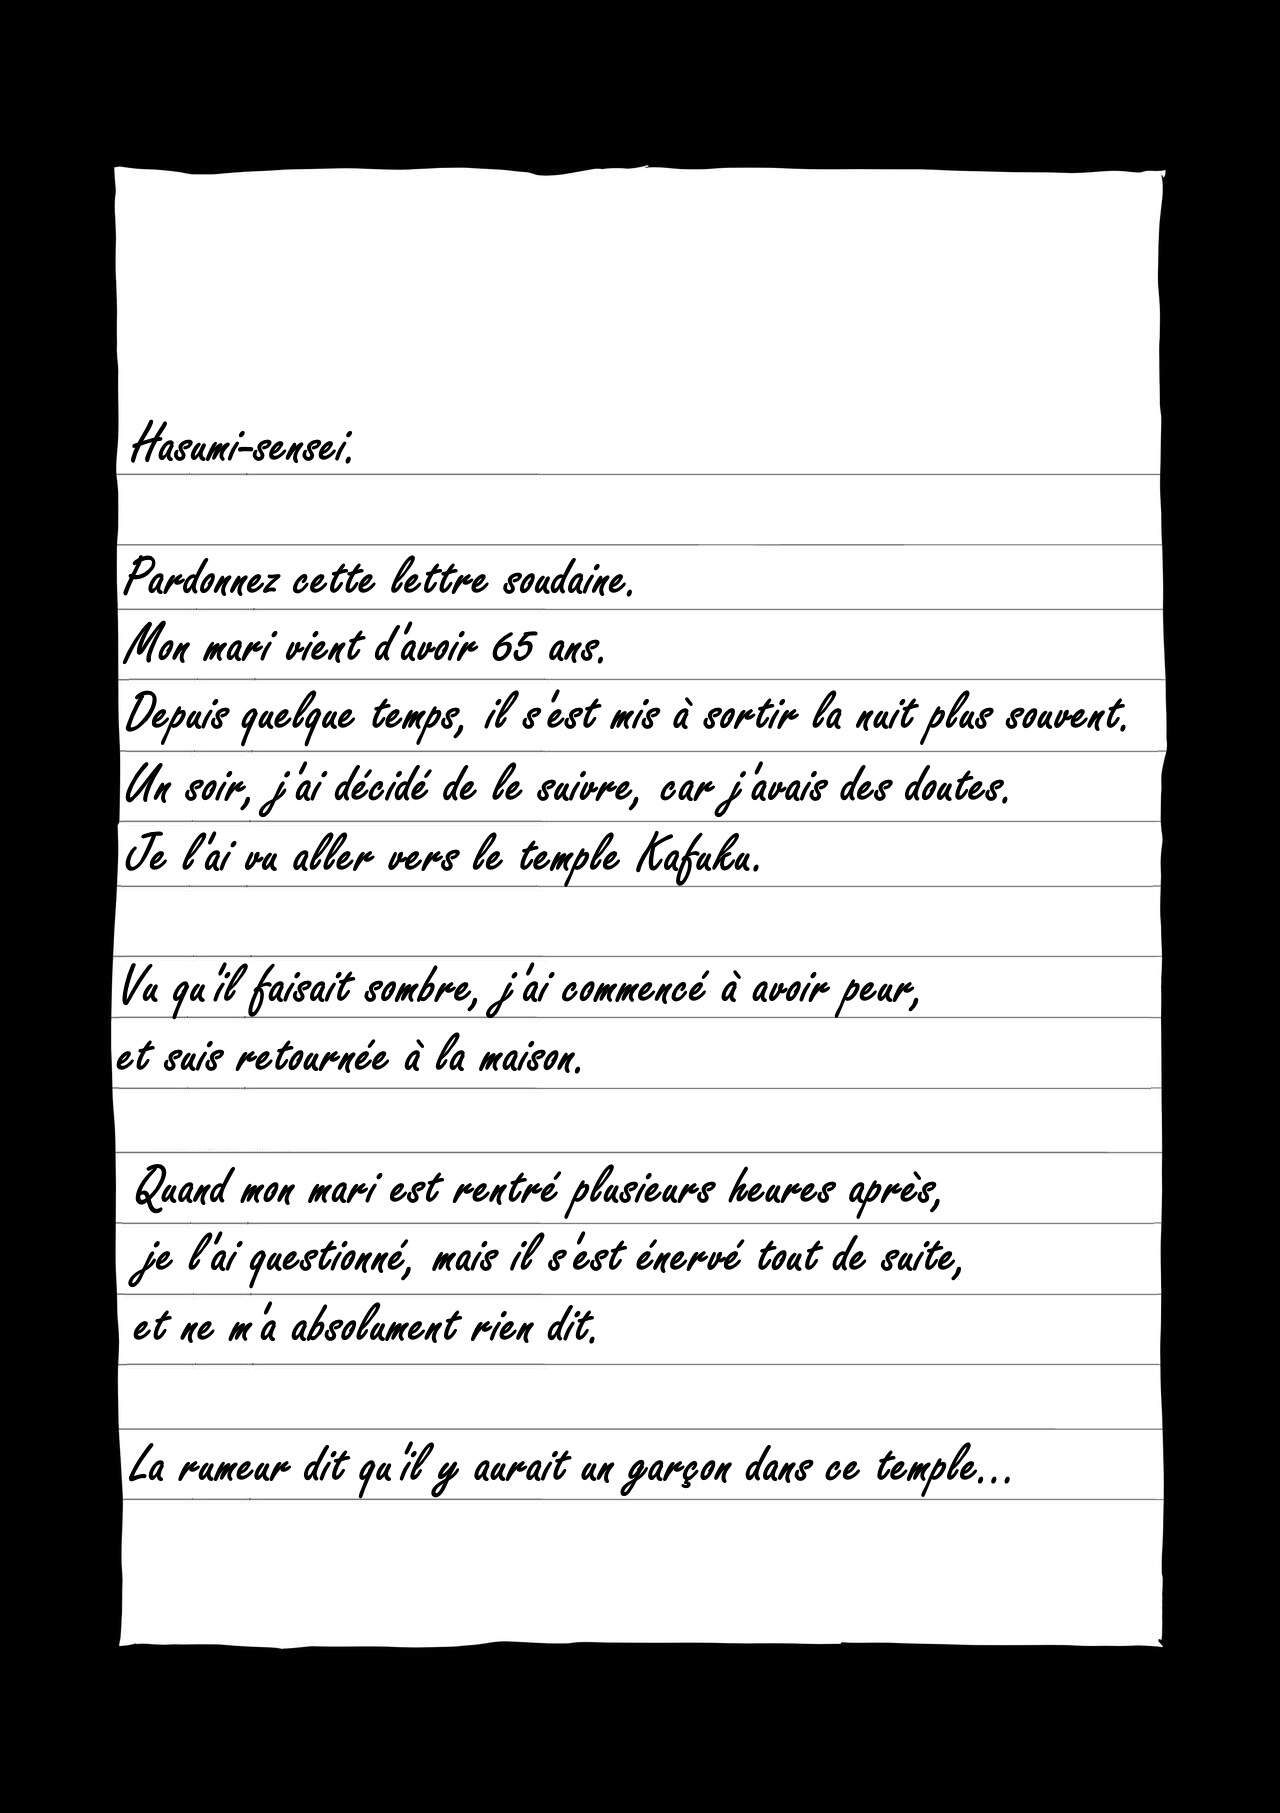 Hasumi-sensei.
Pardonnez cette lettre soudaine.
Mon mari vient d'avoir 65 ans.
Depuis quelque temps, il s'est mis à sortir la nuit plus souvent.
Un soir, j'ai décidé de le suivre, car j'avais des doutes.
Je l'ai vu aller vers le temple Kafuku.
Vu qu'il faisait sombre, j'ai commencé à avoir peur,
et suis retournée à la maison.
Quand mon mari est rentré plusieurs heures après,
je l'ai questionné, mais il s'est énervé tout de suite,
et ne m'a absolument rien dit.
La rumeur dit qu'il y aurait un garçon dans ce temple...